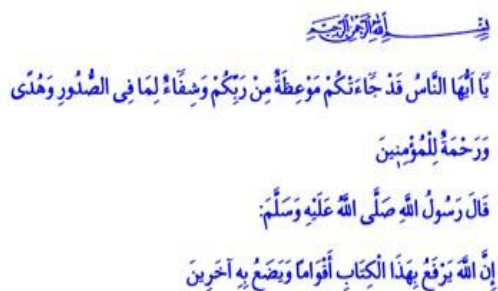 بِسْمِ اللهِ الرَّحْمٰنِ الرَّحِيمِ
يَٓا اَيُّهَا النَّاسُ قَدْ جَٓاءَتْكُمْ مَوْعِظَةٌ مِنْ رَبِّكُمْ وَشِفَٓاءٌ لِمَا فِى الصُّدُورِ وَهُدًى
وَرَحْمَةٌ لِلْمُؤْمِنٖينَ
قَالَ رَسُولُ اللَّهِ صَلَّى اللَّهُ عَلَيْهِ وَسَلَّمَ:
إِنَّ اللَّهَ يَرْفَعُ بِهَذَا الْكِتَابِ أَقْوَامًا وَيَضَعُ بِهِ آخَرِينَ